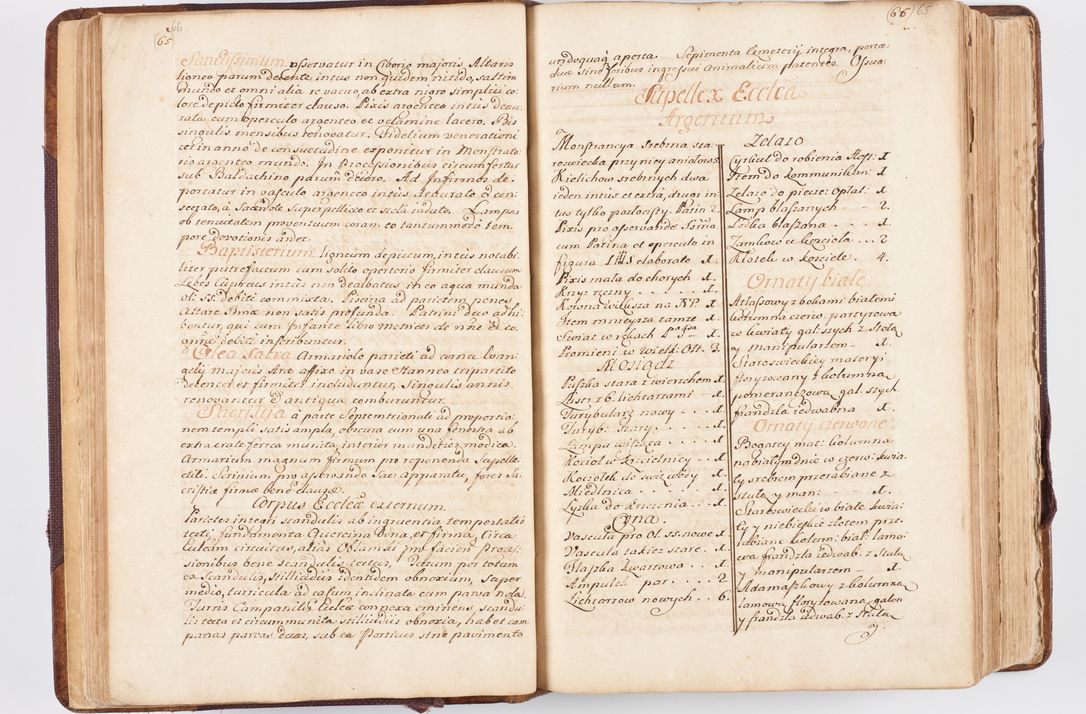 (65
Sanctissimum asservatur in Ciborio majoris Altaris
ligneo parum decente intus non quidem nitido, saltim
mundo et omni alia re vacuo, ab extra nigro simplici co-
lore depicto firmiter clauso. Pixis argentea intus deau-
rata cum operculo argenteo et velamine lacero. Bis
singulis mensibus renovatur. Fidelium venerationi
certi in anno de consvetudine exponitur in Monstrato-
rio argenteo mundo. In Processionibus circumfertur
sub Baldachino parum decoro. Ad Infirmos de-
portatur in vasculo argenteo intus deaurato et con-
secrato, à Sacerdote Superpelliceo et stola induto. Lampas
ob tenuitatem proventuum coram eo tantummodo tem-
pore devotionis ardet.
Baptisterium ligneum depictum, intus notabi-
liter putrefactum cum soleto opertorio firmiter clausum
Lebes Cupreus intus non dealbatus in eo aqua munda
ol: ss: debite commixta. Piscina ad parietem penes
Altare non satis profunda. Patrini duo adhi-
bentur, qui cum Infante libro metrices de nñe et co-
gnõe debite inscribuntur.
Olea Sacra Armariolo parieti ad cornu Evan-
gelij majoris Arae affixo in vase stanneo tripartito
decenter et firmiter includuntur, singulis annis
renovantur et antiqua comburuntur.
Sacristia à parte Septemtrionali ad proportio-
nem templi satis ampla, obscura cum una fenestra ab
extra crate ferrea munita, interior mundities modica.
Armarium magnum firmum pro reponenda supelle-
ctili. Scrinium pro asservando Sac: Apparatu, fores Sa-
cristiae firmae bene clausae.
Corpus Ecclae externum.
Parietes integri scandulis ab ingruentia tempestatis
tecti, fundamenta Quercina bona, et firma, Circa
Culeam circuitus, alias Oblamki pro facien: Proces-
sionibus bene scandulis tectus, Tectum per totum
ex Scandulis, stillicidiis identidem obnoxium, super
medio, turricula ad casum inclinata cum parva nola
Turris Campanilis Ecclae connexa eminens scandu-
lis tecta et circummunita stillicidiis obnoxia, habet cam-
panas parvas duas, sub ea Porticus sine pavimento
(66) 65
undequaq aperta. Sepimenta Cemeterij integra, portae
duae sine foribus ingressui animalium patentes. Ossua-
rium nullum.
Supellex Ecclea
Argentum
Monstrancya srebrna sta-
roswiecka przy niey aniolowie
Kielichow srebrnych dwa
ieden intus et extra, drugi in-
tus tylko pozlocisty. Patin 2.
Pixis pro asservando Ssmo
cum Patina et operculo in
figura IHS elaborato 1.
Pixis mala do chorych 1.
Krzyz reczny . . . 1.
Korona wieksza na NP 1.
Item mnieysza tamze 1.
Swiat w rekach Pana 1.
Promieni w Wielk: Olt: 3.
Mosiadz
Puszka stara z wierzchem 1.
Lustr z 6. lichtarzami - 1.
Turybularz nowy . . . . 1.
Turyb: stary . . . . . 1.
Lampa wisząca . . . . 1.
Kociol w Krzcielnicy . . . 1.
Kociolek do swie: wody . 1.
Miednica . . . . . . 1.
Lyszka do krzcenia . . 1.
Cyna.
Vascula pro Ol. ss. nowe 1.
Vascula takież stare . . 1.
Flaszka kwartowa . . . 1.
Ampulek par . . . . . 2.
Lichtarzow nowych . . 6.
Zelazo
Cyrkiel do robienia Host: 1
Item do Kommunikan: 1.
Zelazo do piecze: oplat: 1.
Lamp blaszanych - - 2.
Toska blaszana . . . . 1.
Zamkow u kosciola . . . 2
Klotek w kosciele . . 4.
Ornaty biale
Atlasowy z bokami bialemi
kolumna czerw. partyrowa
w kwiaty gal: szych z Stola
y manipularzem - 1.
Staroswieckiey materyi
florysowany z kolumna
pomeranczowa gal: szych
frandzla iedwabna 1.
Ornaty Czerwone
Bogatey mat: kolumna
na bialym dnie w czerw: kwia-
ty srebrem przerabiane z
stula y man: - - 1.
Staroswiecki w biale kwia-
ty y niebieskie zlotem prze-
rabiane kolum: bial: lamo-
wa frandzla iedwab. z Stula
y manipularzem - - 1.
Adamaszkowy z kolumna
lamowa florysowana, galon
y frandzla iedwab. z Stula
y.